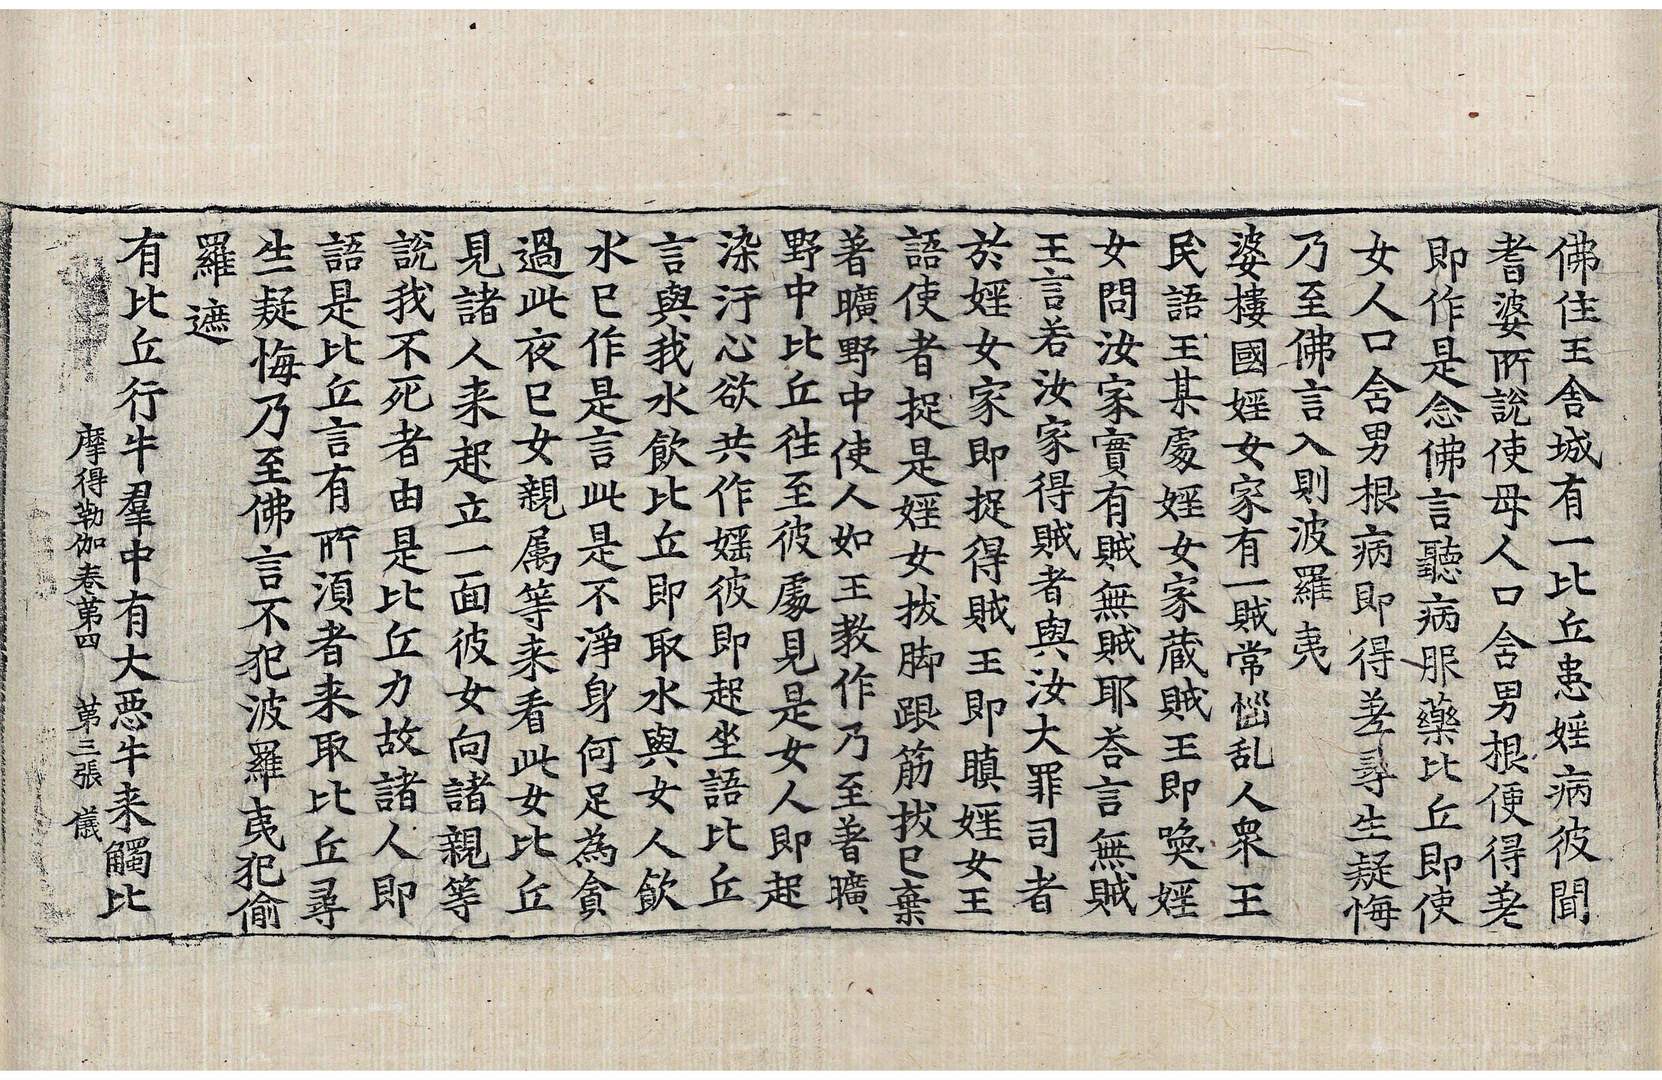 佛住王舍城有一比丘患婬病彼聞
耆婆所說使母人口含男根便得差
即作是念佛言聽病服藥比丘即使
女人口含男根病即得差尋生疑悔
乃至佛言入則波羅夷
婆樓國婬女家有一賊常惱乱人衆王
民語王某處婬女家蔵賊王即喚婬
女問汝家實有賊無賊耶荅言無賊
王言若汝家得賊者與汝大罪司者
於婬女家即捉得賊王即瞋婬女王
語使者捉是婬女拔脚跟筋拔已棄
著曠野中使人如王教作乃至著曠
野中比丘往至彼處見是女人即起
染汙心欲共作婬彼即起坐語比丘
言與我水飲比丘即取水與女人飲
水已作是言此是不淨身何足為貪
過此夜已女親属等来看此女比丘
見諸人来起立一面彼女向諸親等
說我不死者由是比丘力故諸人即
語是比丘言有所湏者来取比丘尋
生疑悔乃至佛言不犯波羅夷犯偷
羅遮
有比丘行牛羣中有大惡牛来觸比
摩得勒伽卷第四 第三張 儀